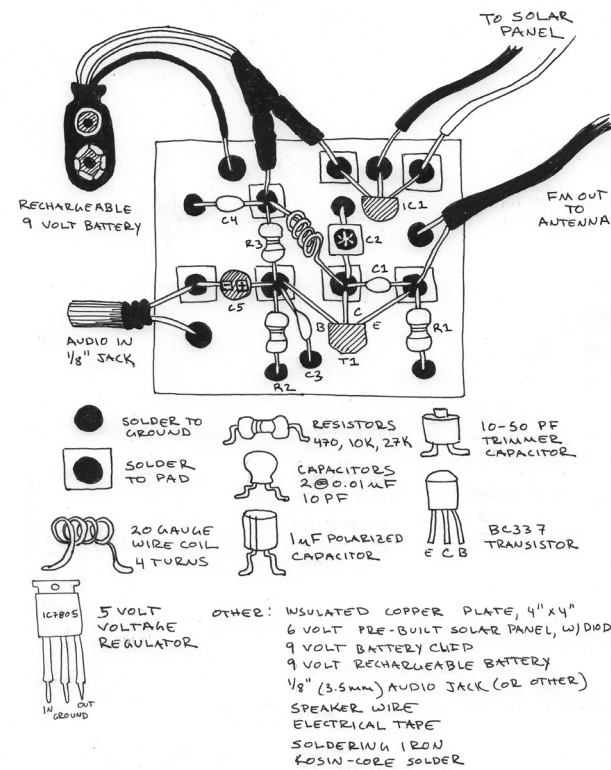 TO SOLAR
PANEL
RECHARGEABLE
9 VOLT BATTERY
IC1
FM OUT
TO
ANTENNA
C4
R3
C2
C1
C5
C
B
E
R1
T1
C3
R2
AUDIO IN
1/8" JACK
SOLDER TO
GROUND
SOLDER
TO PAD
20 GAUGE
WIRE COIL
4 TURNS
RESISTORS
470, 10K, 27K
CAPACITORS
2@0.01uF
10PF
1uF POLARIZED
CAPACITOR
10-50 PF
TRIMMER
CAPACITOR
E C B
BC337
TRANSISTOR
IC7805
IN
GROUND
OUT
5 VOLT
VOLTAGE
REGULATOR
OTHER: INSULATED COPPER PLATE, 4"x4"
6 VOLT PRE-BUILT SOLAR PANEL, W/DIOD
9 VOLT BATTERY CLIP
9 VOLT RECHARGEABLE BATTERY
1/8" (3.5mm) AUDIO JACK (OR OTHER)
SPEAKER WIRE
ELECTRICAL TAPE
SOLDERING IRON
ROSIN-CORE SOLDER